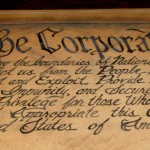 We Corpora
the boundaries of Nationa
ct us from the People
and Exploit, Provide
Impunity, and Secure
Privilege for those Who
Expropriate this C
d States of Am